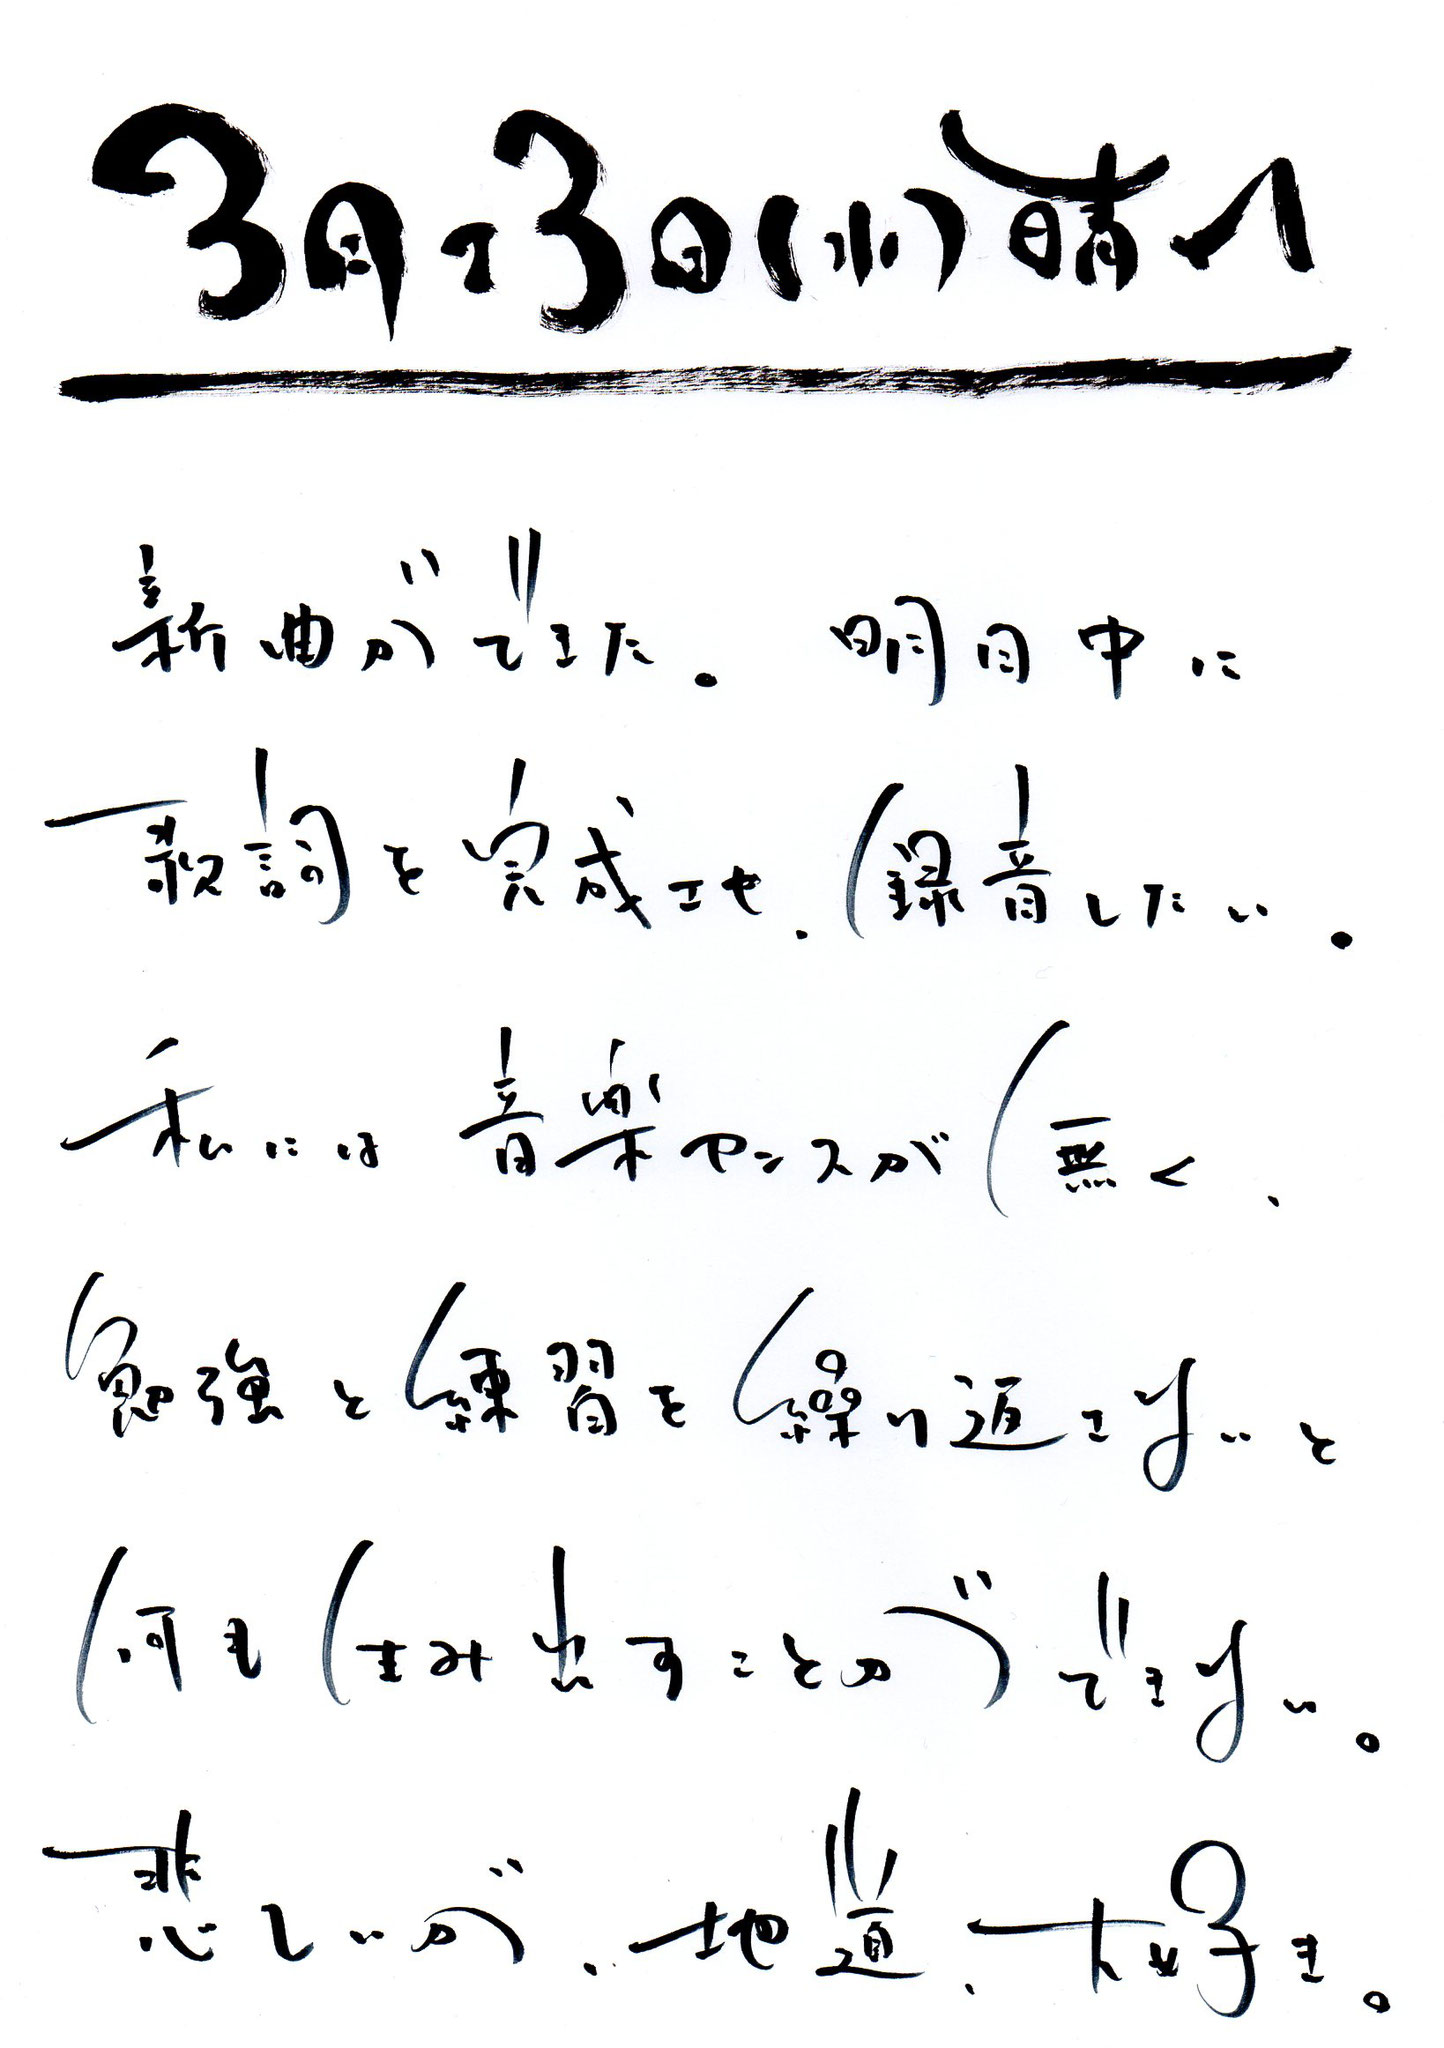 3月23日(水)晴れ
新曲ができた。 明日中に
歌詞を完成させ、録音したい。
私には音楽センスが無く、
勉強と練習を繰り返さないと
何も生み出すことができない。
悲しいが、地道、大好き。